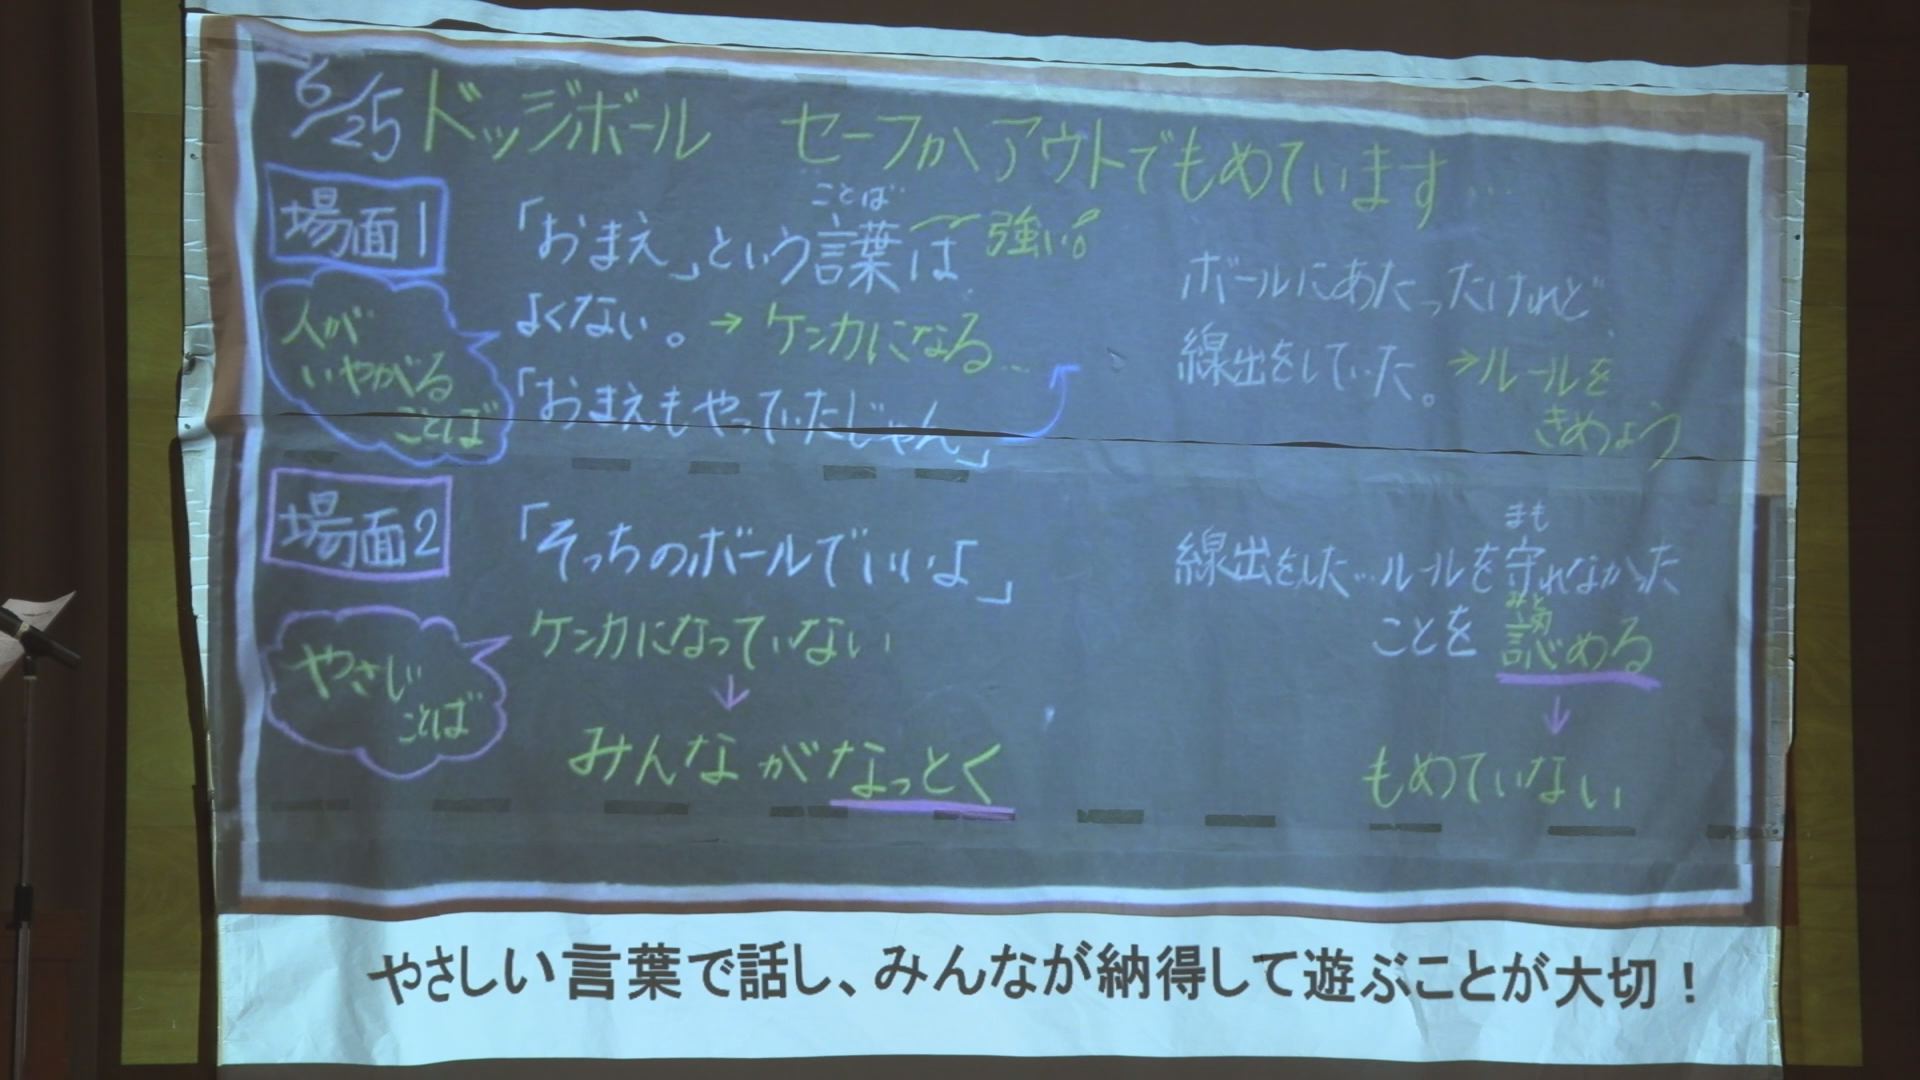 6/25 ドッジボール セーフかアウトでもめています…
場面1
人が
いやがる
ことば
ことば
「おまえ」という言葉は 強い。
よくない。→ケンカになる…
「おまえもやっていたじゃん」
ボールにあたったけれど
線出をしていた。→ルールを
きめよう
場面2
やさしい
ことば
「そっちのボールでいいよ」
ケンカになっていない
↓
みんながなっとく
まも
線出をした…ルールを守れなかった
みと
ことを認める
↓
もめていない
やさしい言葉で話し、みんなが納得して遊ぶことが大切！